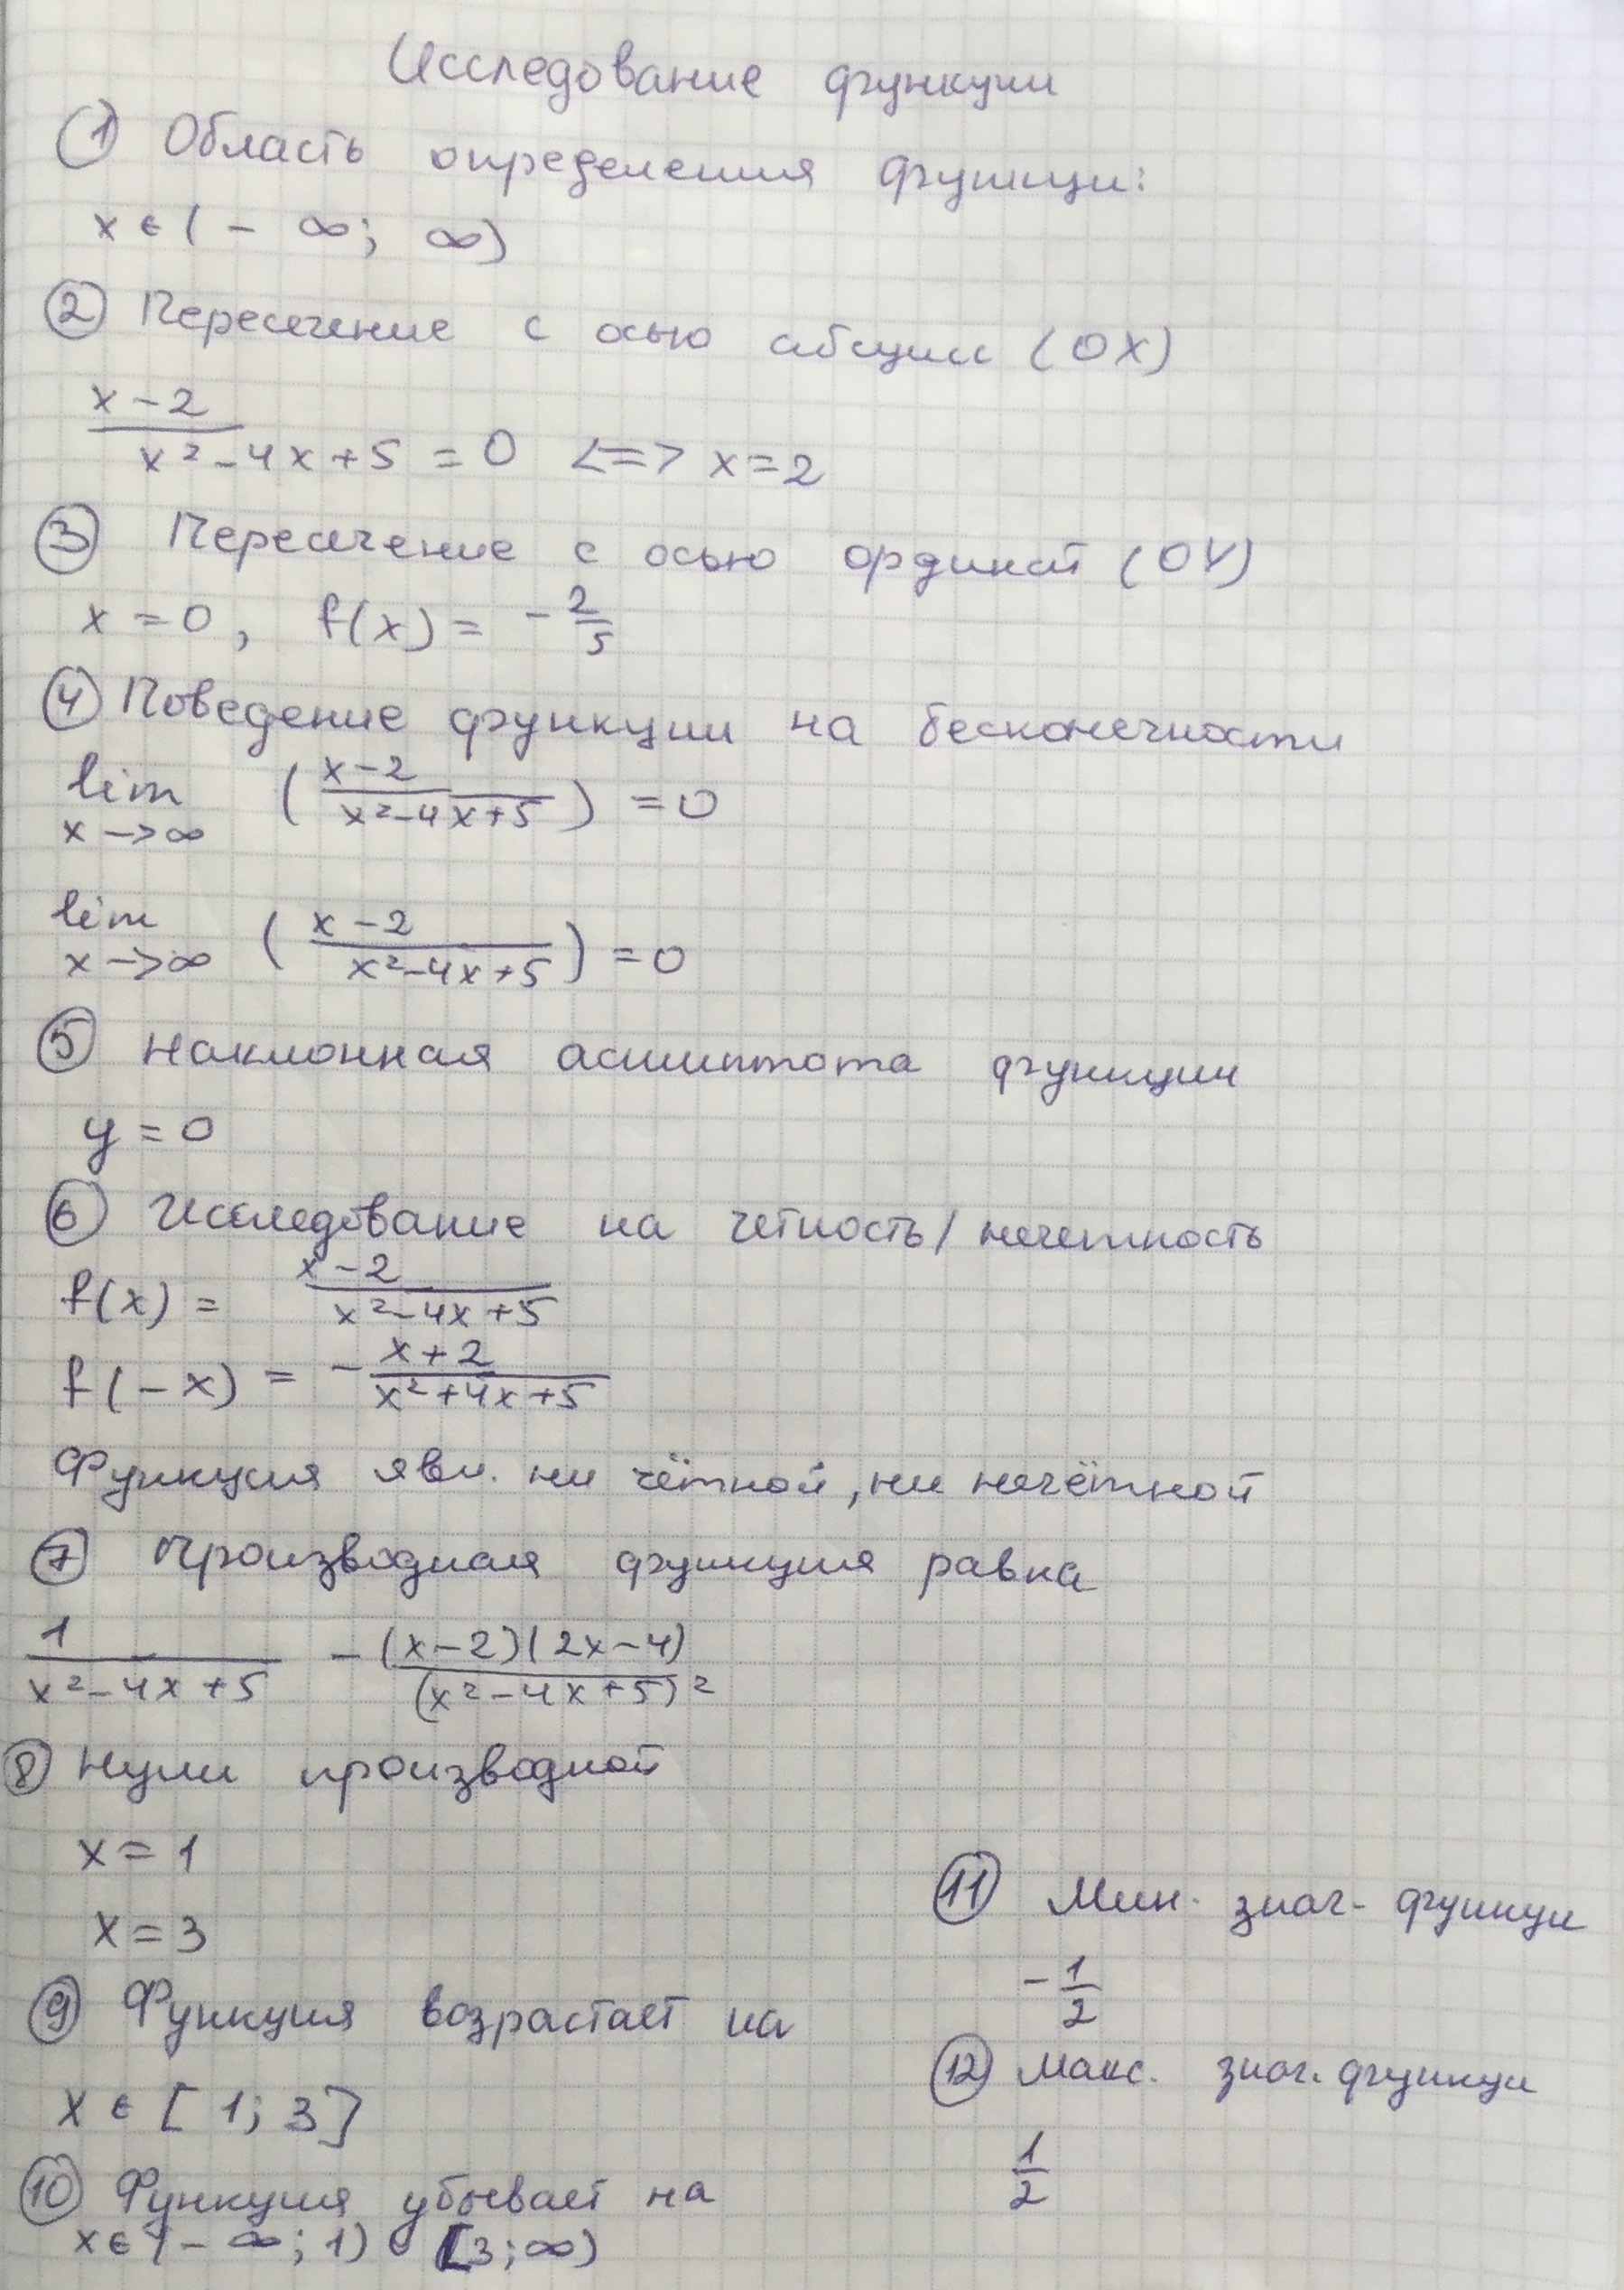 Исследование функции
① Область определения функци:
x ∈ (- ∞; ∞)
② Пересечение с осью абсцисс (OX)
x-2
x²-4x+5 = 0 <=> x=2
③ Пересечение с осью ординат (OY)
x = 0, f(x) = -2/5
④ Поведение функции на бесконечности
lim x->∞ ((x-2)/(x²-4x+5)) = 0
lim x->∞ ((x-2)/(x²-4x+5)) = 0
⑤ Наклонная асимптота функции
y = 0
⑥ Исследование на четность/нечетность
f(x) = (x-2)/(x²-4x+5)
f(-x) = -(x+2)/(x²+4x+5)
Функция явл. ни чётной, ни нечётной
⑦ Производная функция равна
1/(x²-4x+5) - (x-2)(2x-4)/(x²-4x+5)²
⑧ Нули производной
x = 1
x = 3
⑨ Функция возрастает на
x ∈ [1; 3]
⑩ Функция убывает на
x ∈ (- ∞; 1) ∪ [3; ∞)
⑪ Мин. знач. функци
-1/2
⑫ Макс. знач. функци
1/2